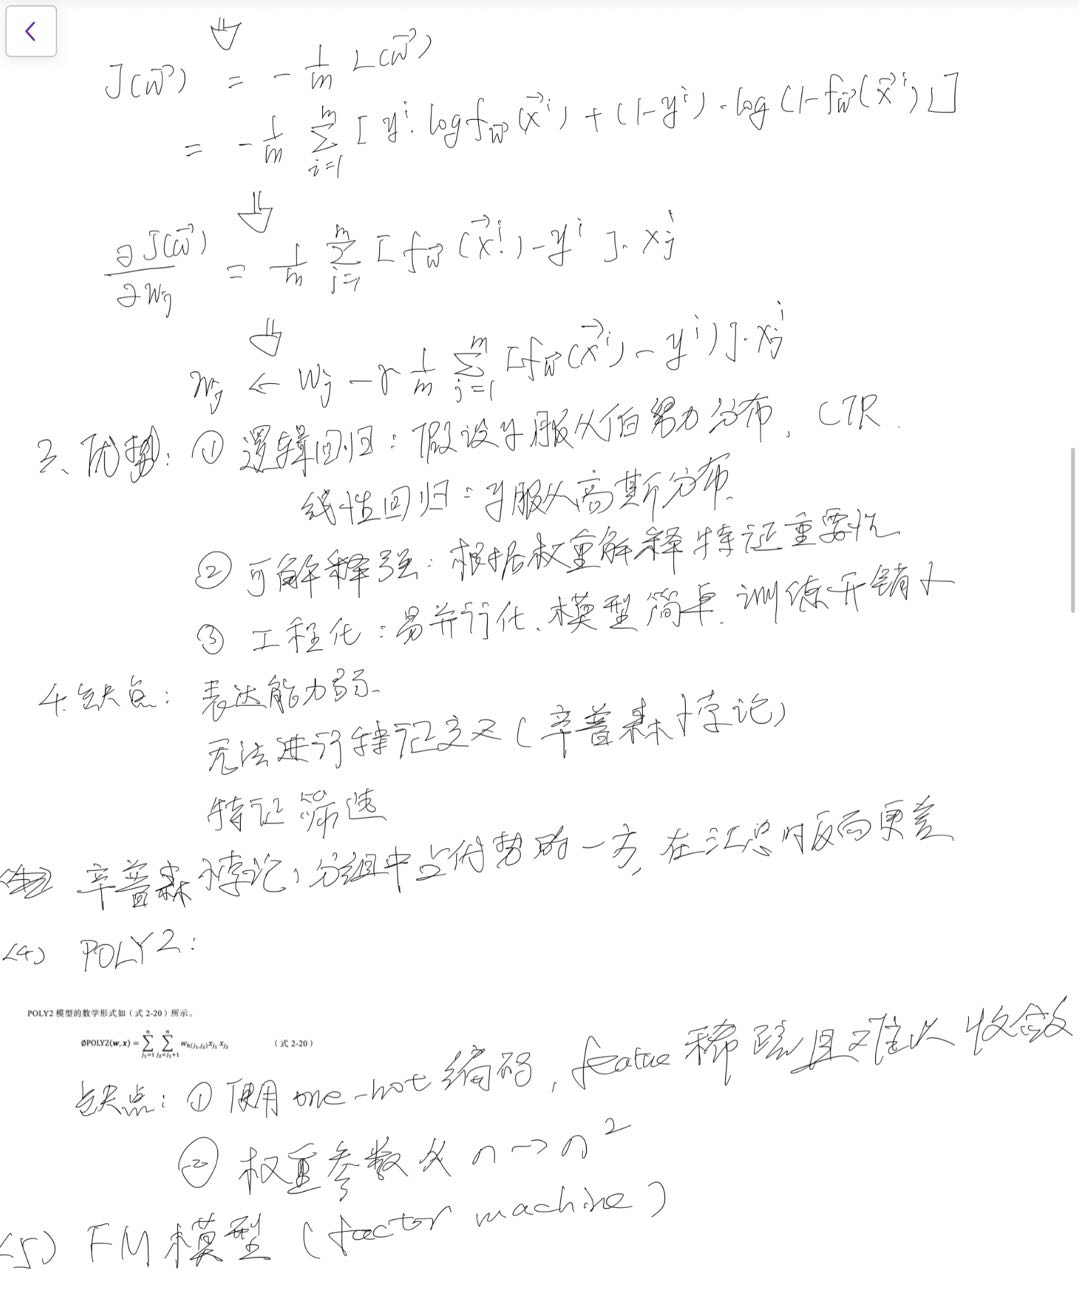 J(w⃗) = - 1/m L(w⃗)
= - 1/m Σ_{i=1}^{m} [ y^i · log f_w⃗(x⃗^i) + (1-y^i) · log (1-f_w⃗(x⃗^i)) ]
∂J(w⃗)/∂w_j = 1/m Σ_{i=1}^{m} [ f_w⃗(x⃗^i) - y^i ] · x_j^i
w_j ← w_j - γ 1/m Σ_{j=1}^{m} [f_w⃗(x⃗^i) - y^i)] · x_j^i
3、优势: ① 逻辑回归: 假设y服从伯努力分布, CTR.
线性回归: y服从高斯分布.
② 可解释强: 根据权重解释特征重要性
③ 工程化: 易并行化、模型简单. 训练开销小
4. 缺点: 表达能力弱.
无法进行特征交叉 (辛普森悖论)
特征筛选
辛普森悖论: 分组中占优势的一方, 在汇总时反而更差
(4) POLY2:
POLY2 模型的数学形式如(式 2-20)所示。
ØPOLY2(w, x) = Σ_{j₁=1}^{n} Σ_{j₂=j₁+1}^{n} w_{h(j₁,j₂)} x_{j₁} x_{j₂} (式 2-20)
缺点: ① 使用 one-hot 编码, featue 稀疏且难以收敛
② 权重参数从 n → n²
(5) FM模型 (factor machine)